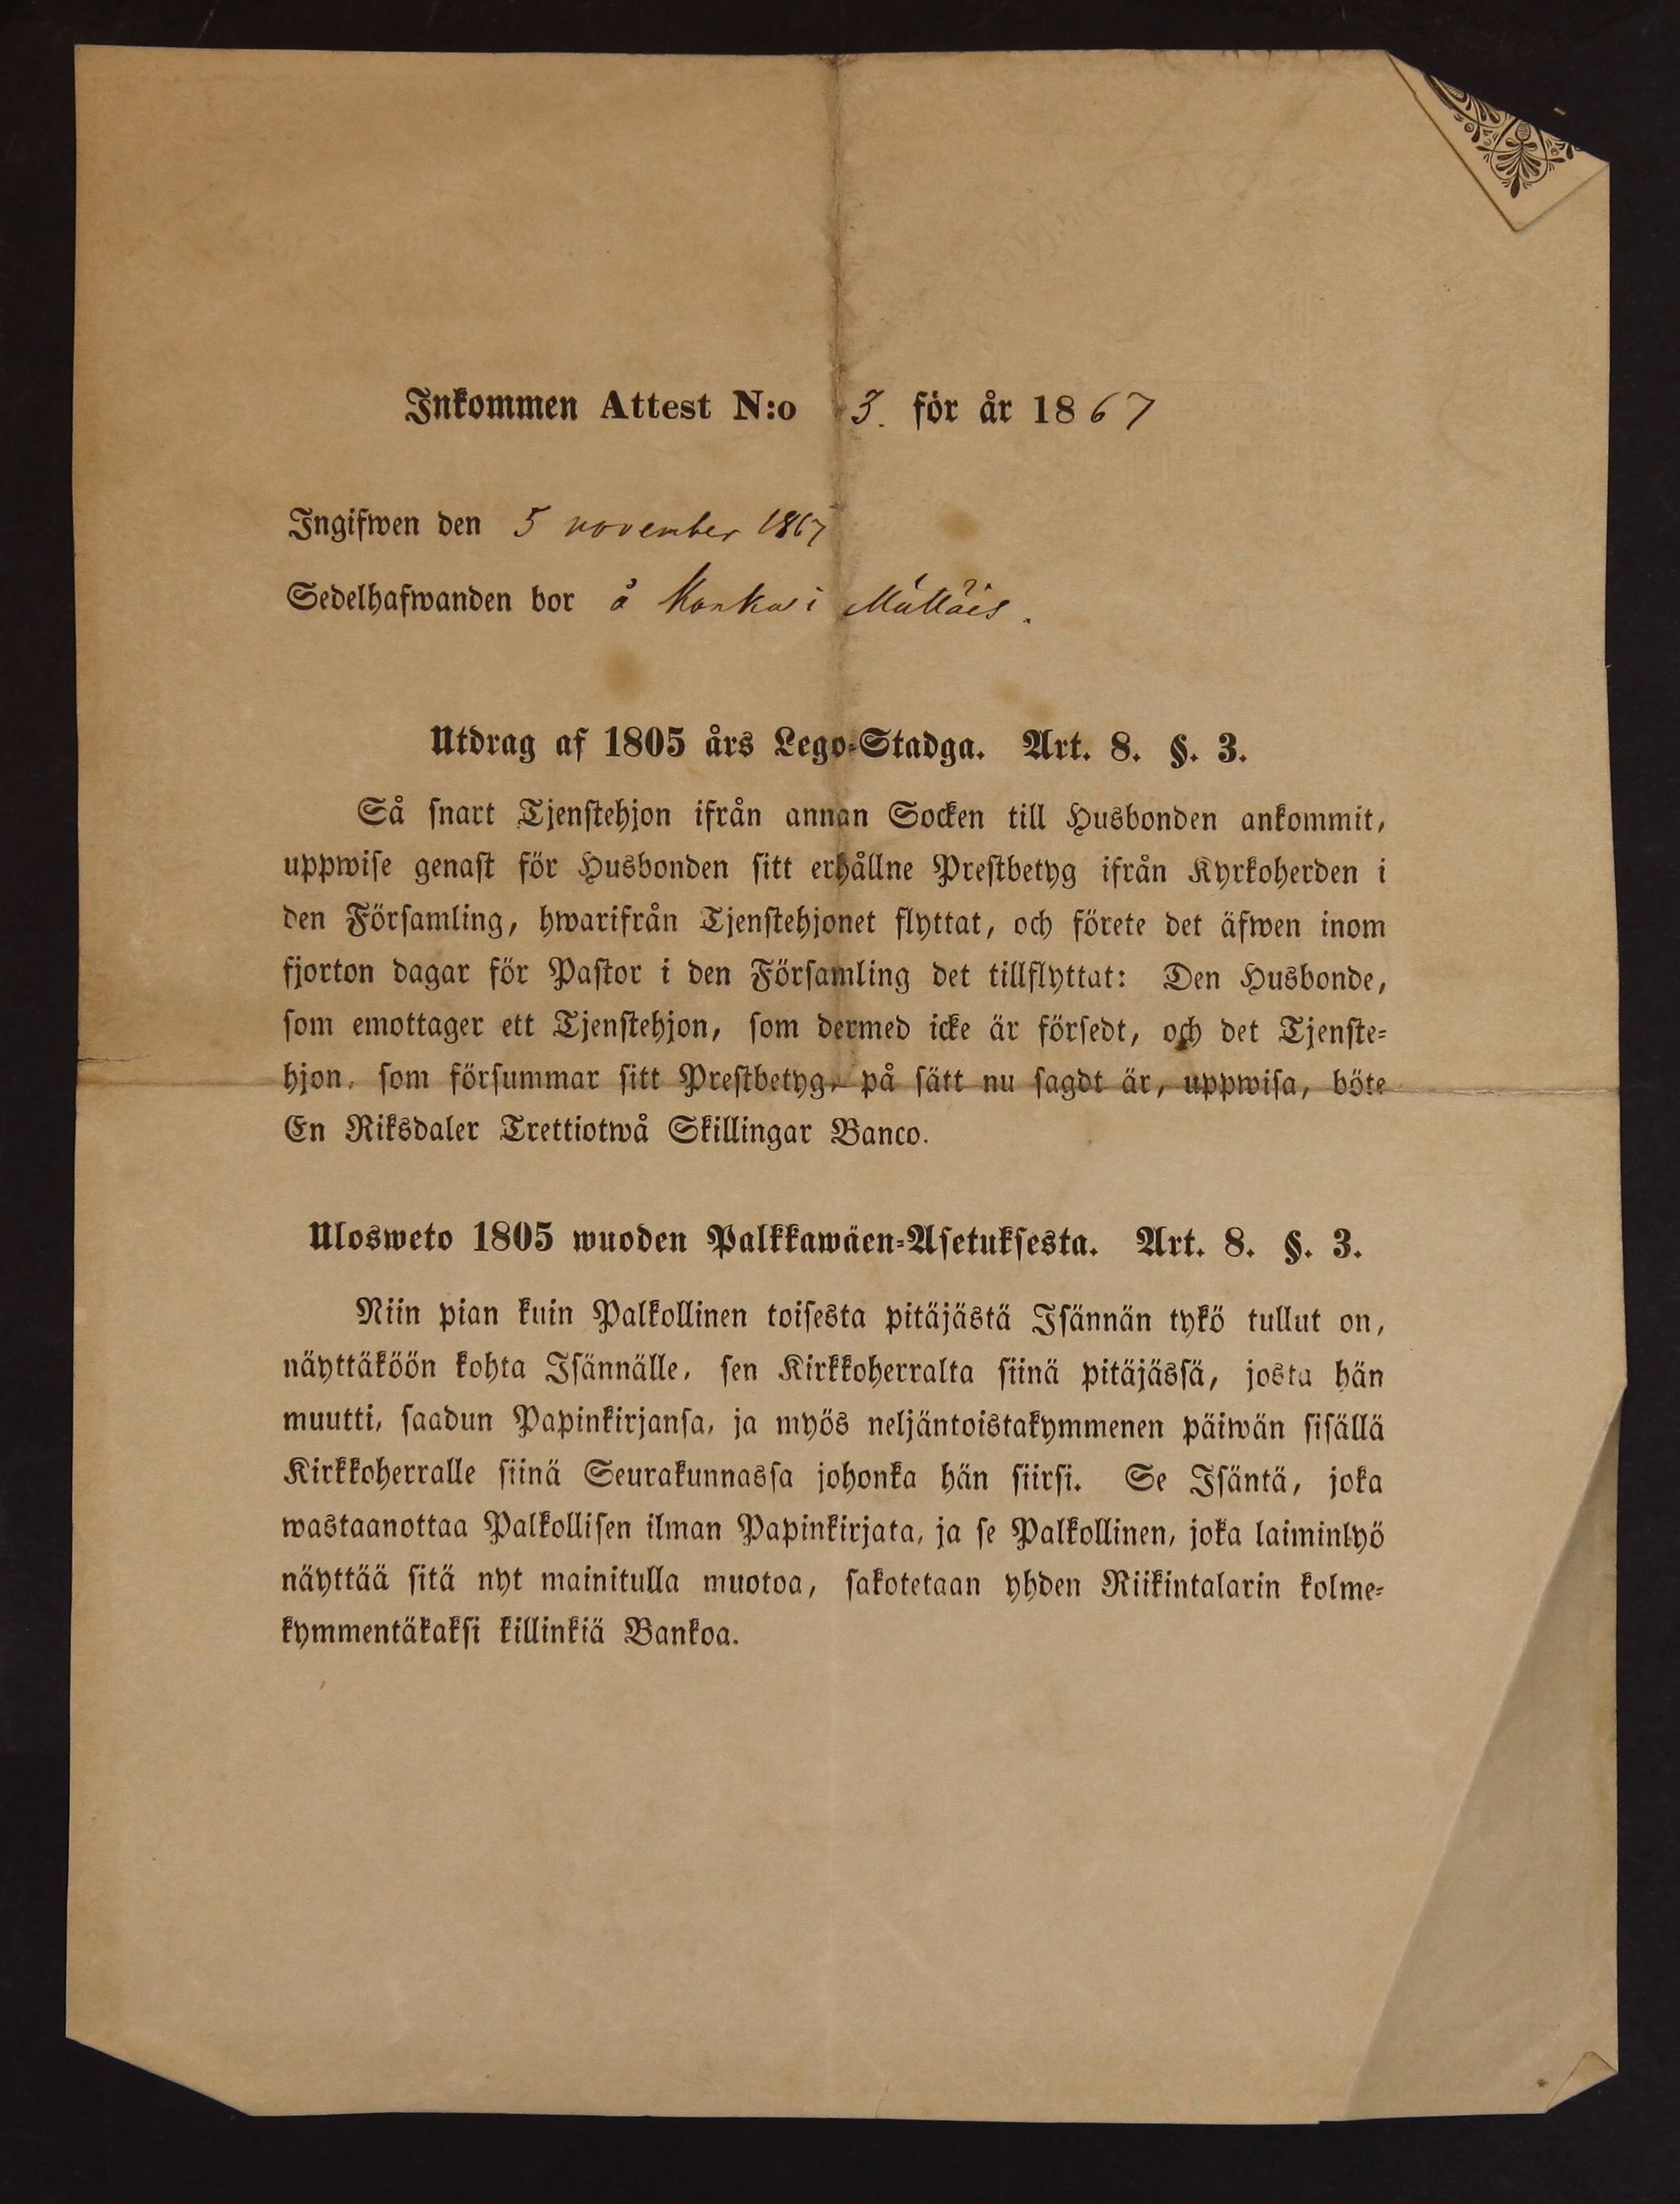 Inkommen Attest N:o 3. för år 1867
Ingifwen den 5 november 1867
Sedelhafwanden bor å i
Utdrag af 1805 års Lego-Stadga. Art. 8. §. 3.
Så snart Tjenstehjon ifrån annan Socken till Husbonden ankommit,
uppwise genast för Husbonden sitt erhållne Prestbetyg ifrån Kyrkoherden i
den Församling, hwarifrån Tjenstehjonet flyttat, och förete det äfwen inom
fjorton dagar för Pastor i den Församling det tillflyttat: Den Husbonde,
som emottager ett Tjenstehjon, som dermed icke är försedt, och det Tjenste-
hjon, som försummar sitt Prestbetyg, på sätt nu sagdt är, uppwisa, böte
En Riksdaler Trettiotwå Skillingar Banco.
Ulosweto 1805 wuoden Palkkawäen-Asetuksesta. Art. 8. §. 3.
Niin pian kuin Palkollinen toisesta pitäjästä Isännän tykö tullut on,
näyttäköön kohta Isännälle, sen Kirkkoherralta siinä pitäjässä, josta hän
muutti, saadun Papinkirjansa, ja myös neljäntoistakymmenen päiwän sisällä
Kirkkoherralle siinä Seurakunnassa johonka hän siirsi. Se Isäntä, joka
wastaanottaa Palkollisen ilman Papinkirjata, ja se Palkollinen, joka laiminlyö
näyttää sitä nyt mainitulla muotoa, sakotetaan yhden Riikintalarin kolme-
kymmentäkaksi killinkiä Bankoa.